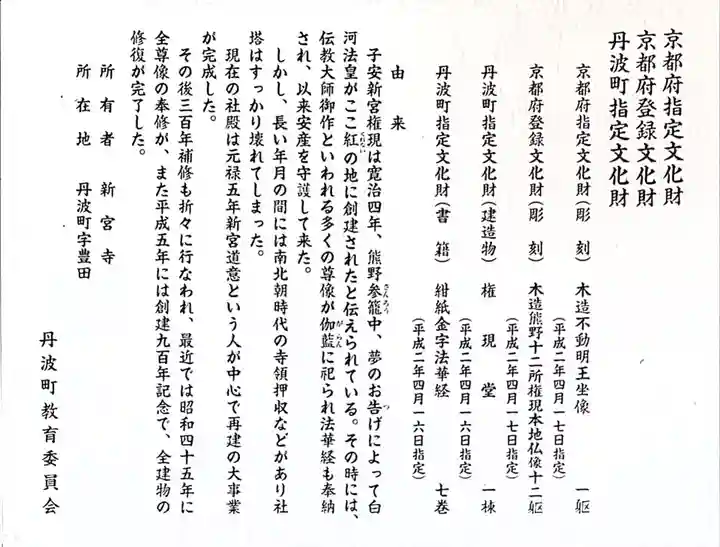 京都府指定文化財
京都府登録文化財
丹波町指定文化財
京都府指定文化財(彫　刻)　木造不動明王坐像　一躯
(平成二年四月一七日指定)
京都府登録文化財(彫　刻)　木造熊野十二所権現本地仏像十二躯
(平成二年四月一七日指定)
丹波町指定文化財(建造物)　権　現　堂　一棟
(平成二年四月一六日指定)
丹波町指定文化財(書　籍)　紺紙金字法華経　七巻
(平成二年四月一六日指定)
由　来
子安新宮権現は寛治四年、熊野参籠中、夢のお告げによって白
河法皇がここ紅の地に創建されたと伝えられている。その時には、
伝教大師御作といわれる多くの尊像が伽藍に祀られ法華経も奉納
され、以来安産を守護して来た。
しかし、長い年月の間には南北朝時代の寺領押収などがあり社
塔はすっかり壊れてしまった。
現在の社殿は元禄五年新宮道意という人が中心で再建の大事業
が完成した。
その後三百年補修も折々に行なわれ、最近では昭和四十五年に
全尊像の奉修が、また平成五年には創建九百年記念で、全建物の
修復が完了した。
所　有　者　新　宮　寺
所　在　地　丹波町字豊田
丹波町教育委員会